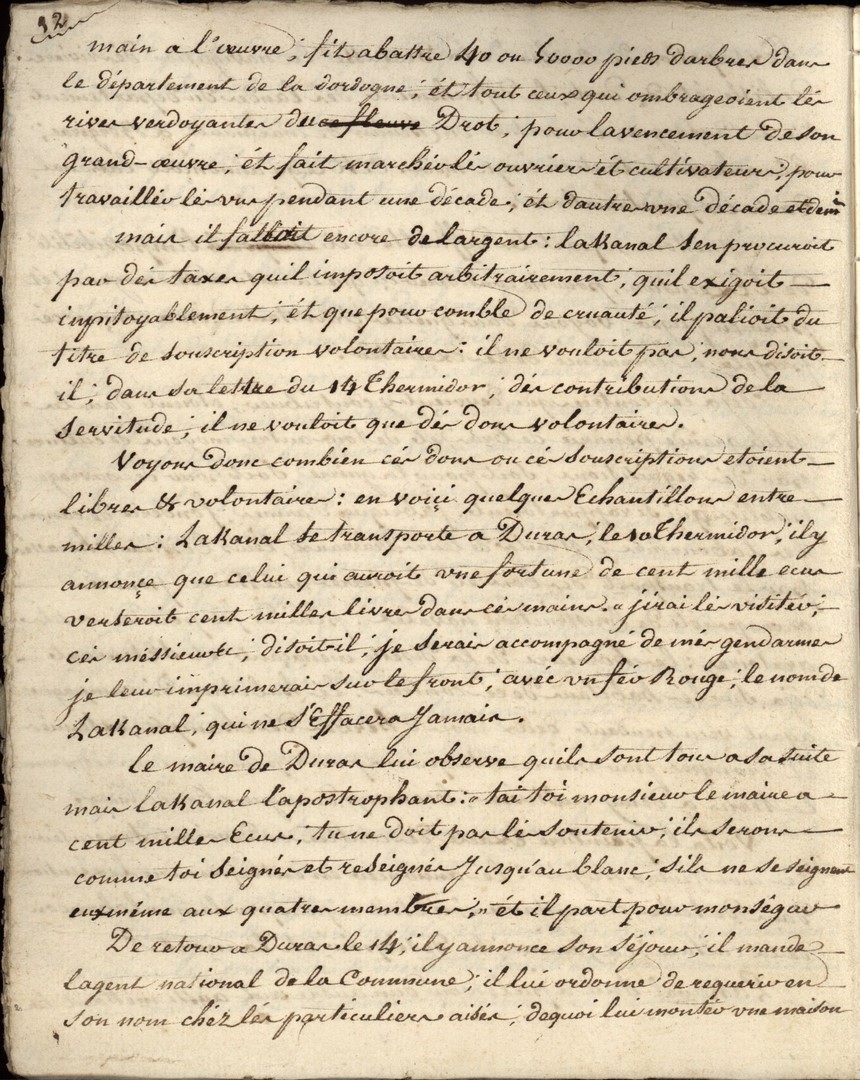 12
main a l'œuvre; fit abattre 40 ou 50000 pieds d'arbres dans
le département de la dordogne; ét tout ceux qui ombrageoient lés
rives verdoyantes du ce fleuve Drot; pour lavencement de son
grand-œuvre; ét fait marchér lés ouvriers ét cultivateurs; pour
travaillér lés uns pendant une décade; ét dautres une décade et demi
mais il falloit encore de largent: laKanal s'en procuroit
par dés taxes quil imposoit arbitrairement; quil exigoit
inpitoyablement; ét que pour comble de cruauté; il palioit du
titre de souscription volontaires: il ne vouloit pas; nous disoit
il; dans sa lettre du 14 Thermidor; dés contributions de la
servitude; il ne vouloit que dés dons volontaires.
Voyons donc combien cés dons ou cés souscriptions etoient
libres & volontaires: en voiçi quelques Echantillons entre
milles: LaKanal se transporte a Duras; le 10 Thermidor; il y
annonçe que celui qui auroit une fortune de cent mille ecus
verseroit cent milles livres dans cés mains. "j'irai lés visitér;
cés méssieurs; disoit-il; je serais accompagné de més gendarmes
je leur imprimerais sur le front; avéc un fér Rouge; le nom de
LaKanal; qui ne s'Effacera Jamais.
le maire de Duras lui observe quils sont tous a sa suite
mais laKanal l'apostrophant: "tai toi monsieur le maire a
cent milles Ecus; tu ne doit pas lés soutenir; ils serons
comme toi seignés et reseignés Jusqu'au blanc; sils ne se seignent
euxméme aux quatres membres," ét il part pour monségur
De retour a Duras le 14; il y annonce son séjour; il mande
lagent national de la Commune; il lui ordonne de requerir en
son nom chéz lés particuliers aisés; dequoi lui montér une maison